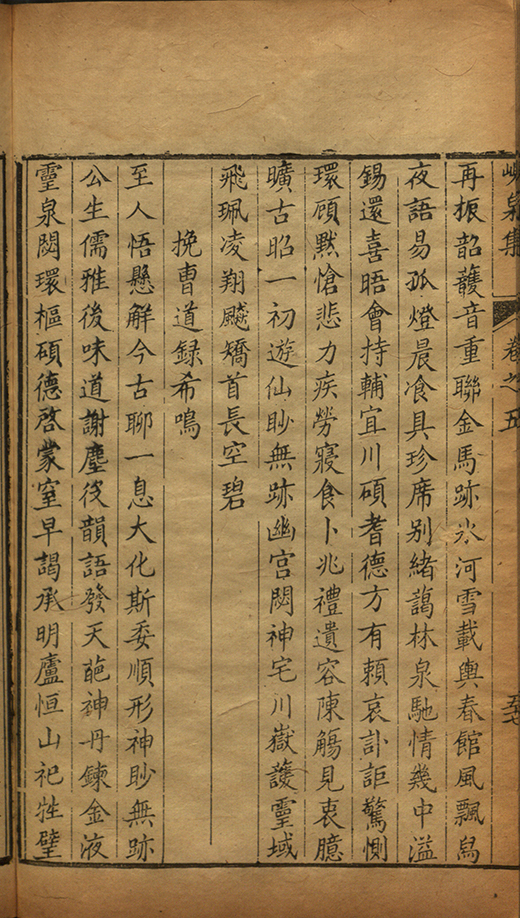 峴泉集 卷之五
再振韶頀音重聯金馬跡氷河雪載輿春館風飄舃
夜語易孤燈晨飡具珍席別緒藹林泉馳情幾中溢
錫還喜晤會持輔宜川碩耆德方有頼哀訃詎驚惻
環顧黙愴悲力疾勞寢食卜兆禮遺容陳觴見衷臆
曠古昭一初遊仙眇無跡幽宫閟神宅川嶽護靈域
飛珮凌翔飈矯首長空碧
挽曹道録希鳴
至人悟懸解今古聊一息大化斯委順形神眇無跡
公生儒雅後味道謝塵役韻語發天葩神丹鍊金液
靈泉閟環樞碩德啓蒙室早謁承明廬恒山祀牲璧